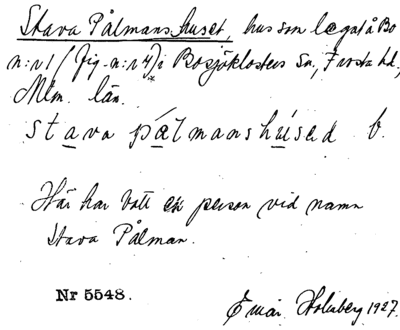 Stava Pålmanshuset, hus som legat å Bo
n:r 1 (fig. n:r 4) i Bosjöklosters Sn, Frosta hd,
Mlm. län.
stava pålmanshúsed b.
Här har bott en person vid namn
Stava Pålman.
Nr 5548.
Emar Holmberg 1927.